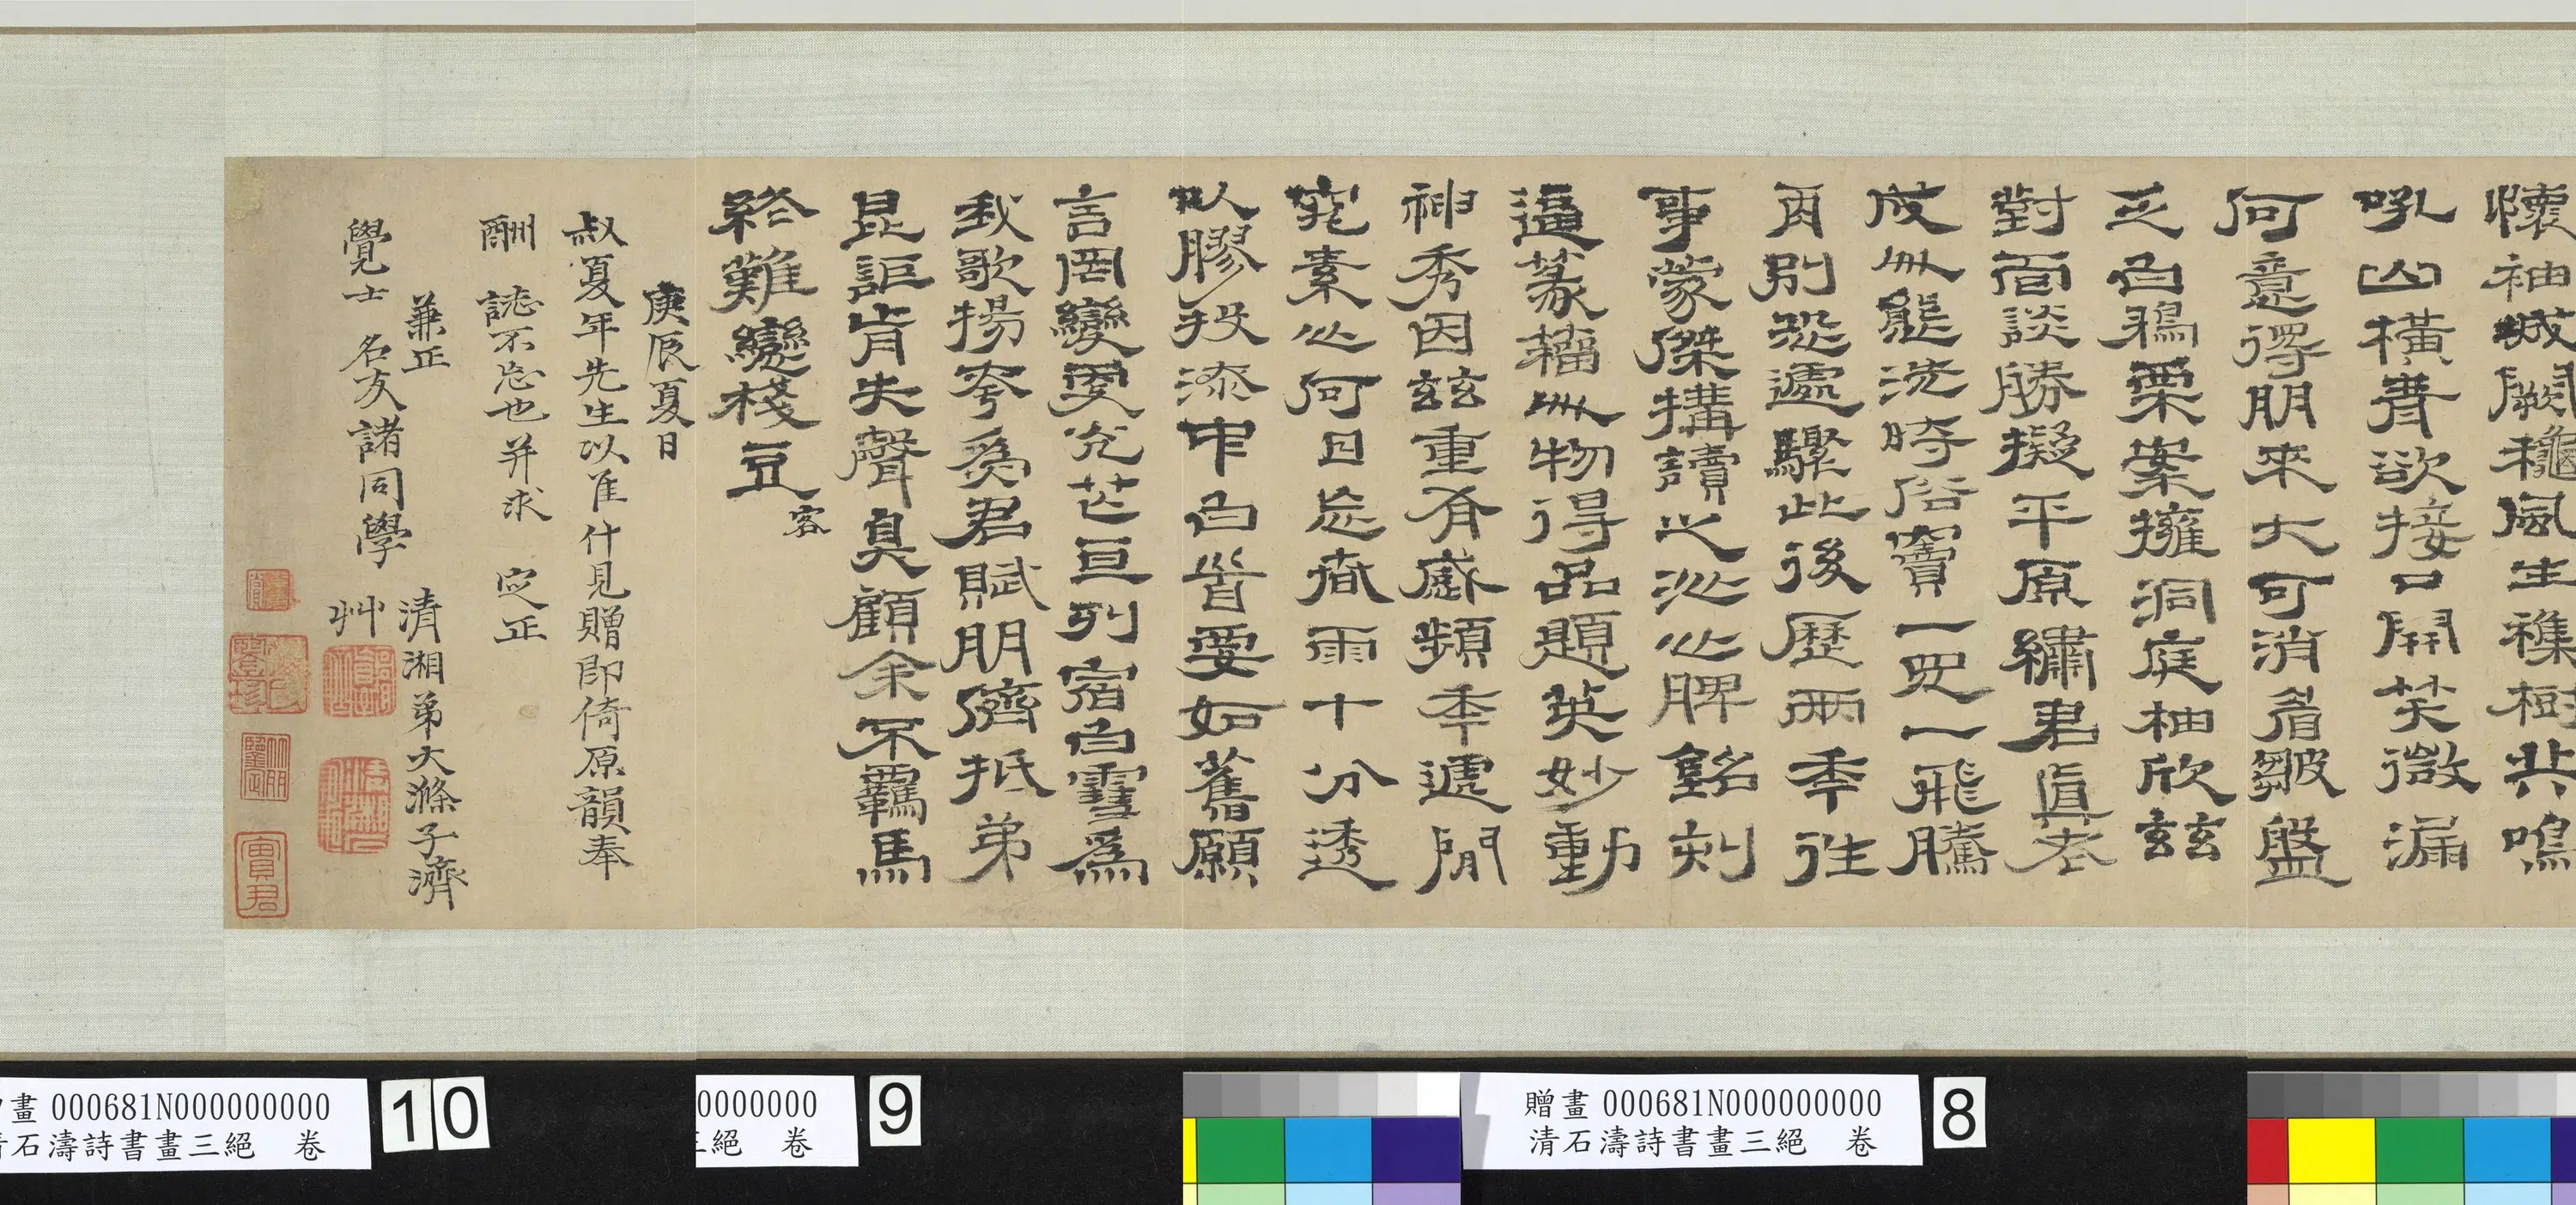 懷袖城闕穐風生穕樹共鳴
吼山橫青欲接口開笑微漏
何意得朋來大可消眉皺盤
乏白鵶栗案擁洞庭柚欣玆
對面談勝擬平原繡君真老
成無態洗時俗竇一眾一飛騰
再別恐遽驟此後歷兩季往
事蒙傑搆讀之沁心脾銘刻
逼篆籀無物得品題英妙動
神秀因玆重有感頻季遞閒
究素心何日忘商雨十分透
以膠投漆中白首要如舊願
言罔變更允芒亙列宿白雪為
我歌揚夸為君賦朋儕抵弟
昆詎肯失聲臭顧余不羈馬
終難變棧豆
客
庚辰夏日
叔夏年先生以佳什見贈即倚原韻奉
酬 誌不忘也并求 定正
兼正
覺士 名友諸同學
清湘弟大滌子濟
艸
寶君
畫 000681N000000000
清石濤詩書畫三絕 卷
10
0000000
三絕 卷
9
贈畫 000681N000000000
清石濤詩書畫三絕 卷
8